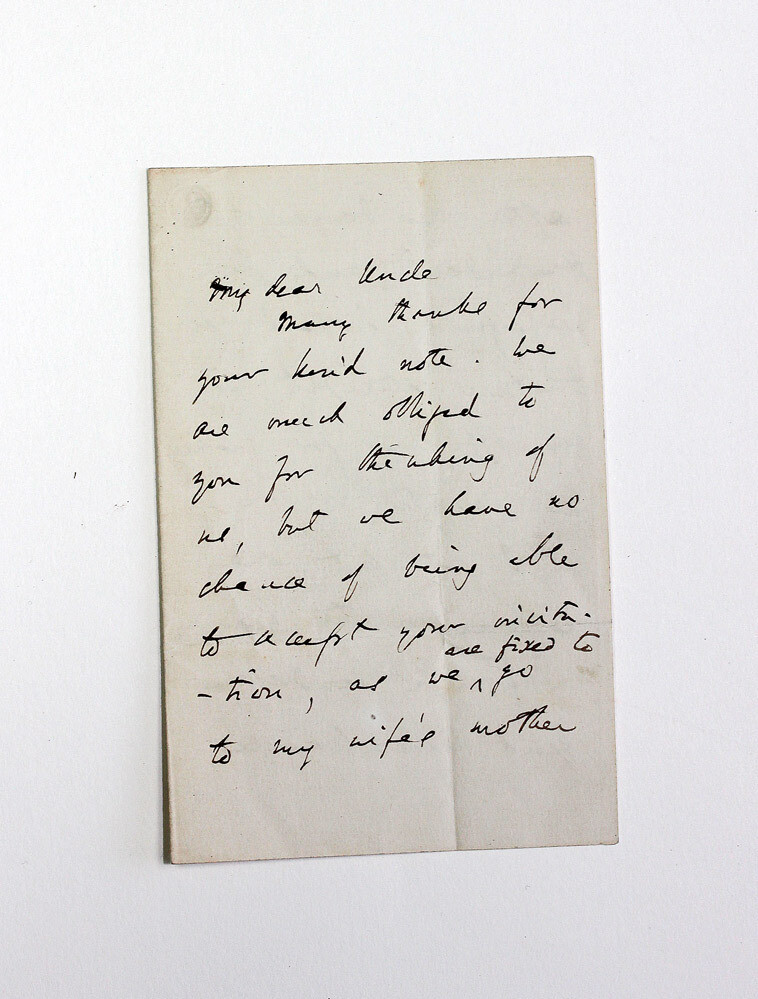 My dear Uncle
Many thanks for
your kind note. We
are much obliged to
you for thinking of
us, but we have no
chance of being able
to accept your invita-
are fixed to
-tion, as we ^ go
to my wife's mother